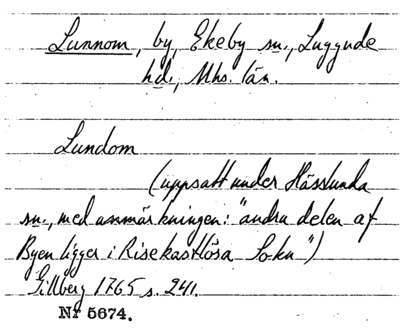 Lunnom, by, Ekeby sn., Luggude
hd., Mhs. län.
Lundom
(uppsatt under Hässlunda
sn., med anmärkningen: "andra delen af
Byen ligger i Risekastlösa Sokn")
Gillberg 1765 s. 241.
Nr 5674.